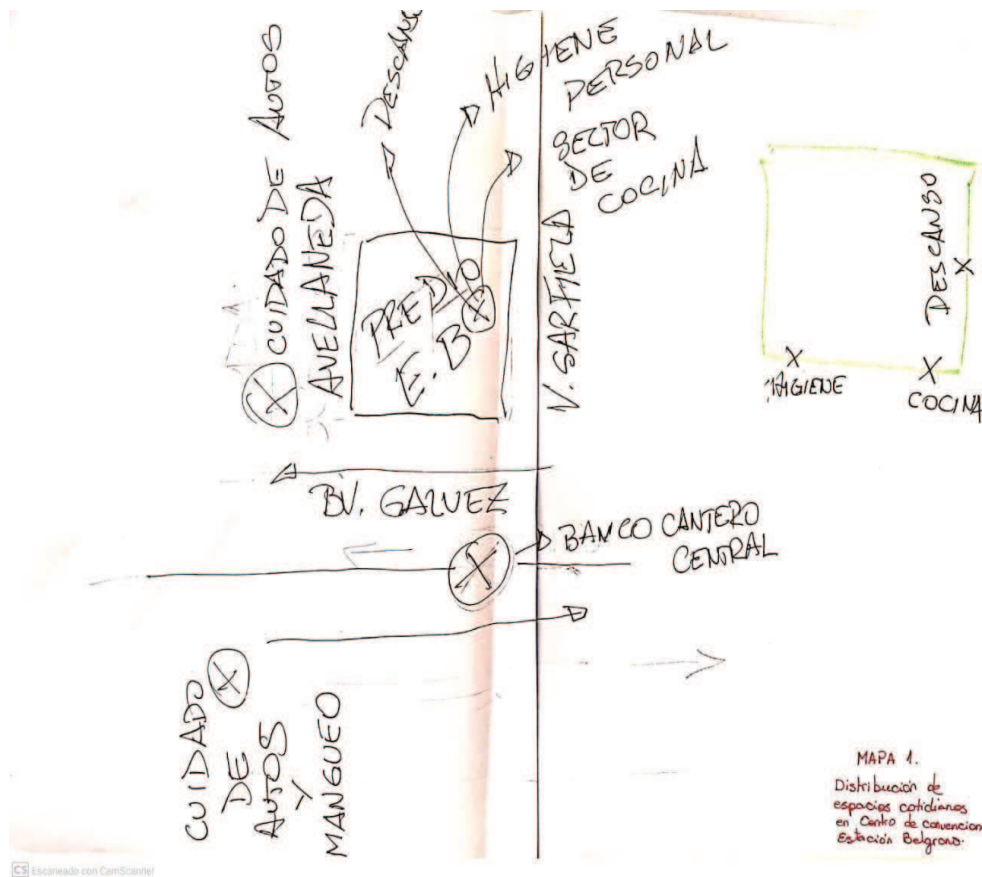 CUIDADO DE AUTOS
AVELLANEDA
HIGIENE
PERSONAL
SECTOR
DE
COCINA
PREDIO
E.B
V. SARFIELD
DESCANSO
HIGIENE
COCINA
BV. GALVEZ
BANCO CANTERO
CENTRAL
CUIDADO
DE
AUTOS
Y
MANGUEO
MAPA 1.
Distribución de
espacios cotidianos
en Centro de convencion
Estación Belgrano.
CS Escaneado con CamScanner